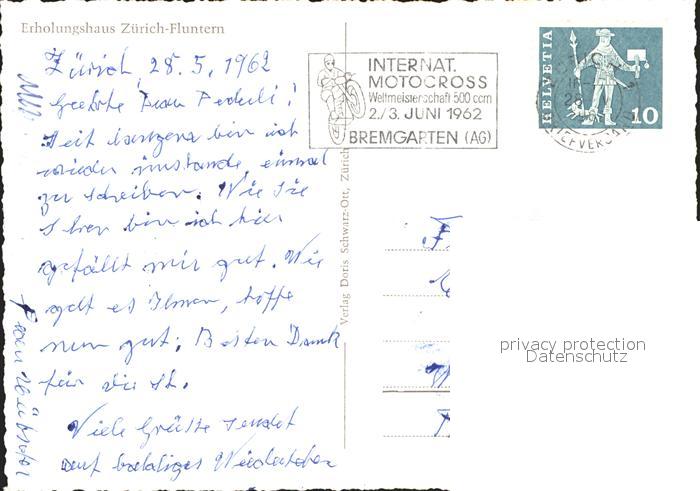 Erholungshaus Zürich-Fluntern
Zürich, 28.5.1962
Geehrte Frau Peduli!
Seit langem bin ich
wieder imstande, einmal
zu schreiben. Wie Sie
sehen bin ich hier
gefällt mir gut. Wie
geht es Ihnen, hoffe
nun gut; Besten Dank
für die
Viele Grüsse sendet
auf baldiges Wiedersehen
Frau
Verlag Doris Schwarz-Ott, Zürich
INTERNAT.
MOTOCROSS
Weltmeisterschaft 500 ccm
2./3. JUNI 1962
BREMGARTEN (AG)
HELVETIA
10
privacy protection
Datenschutz